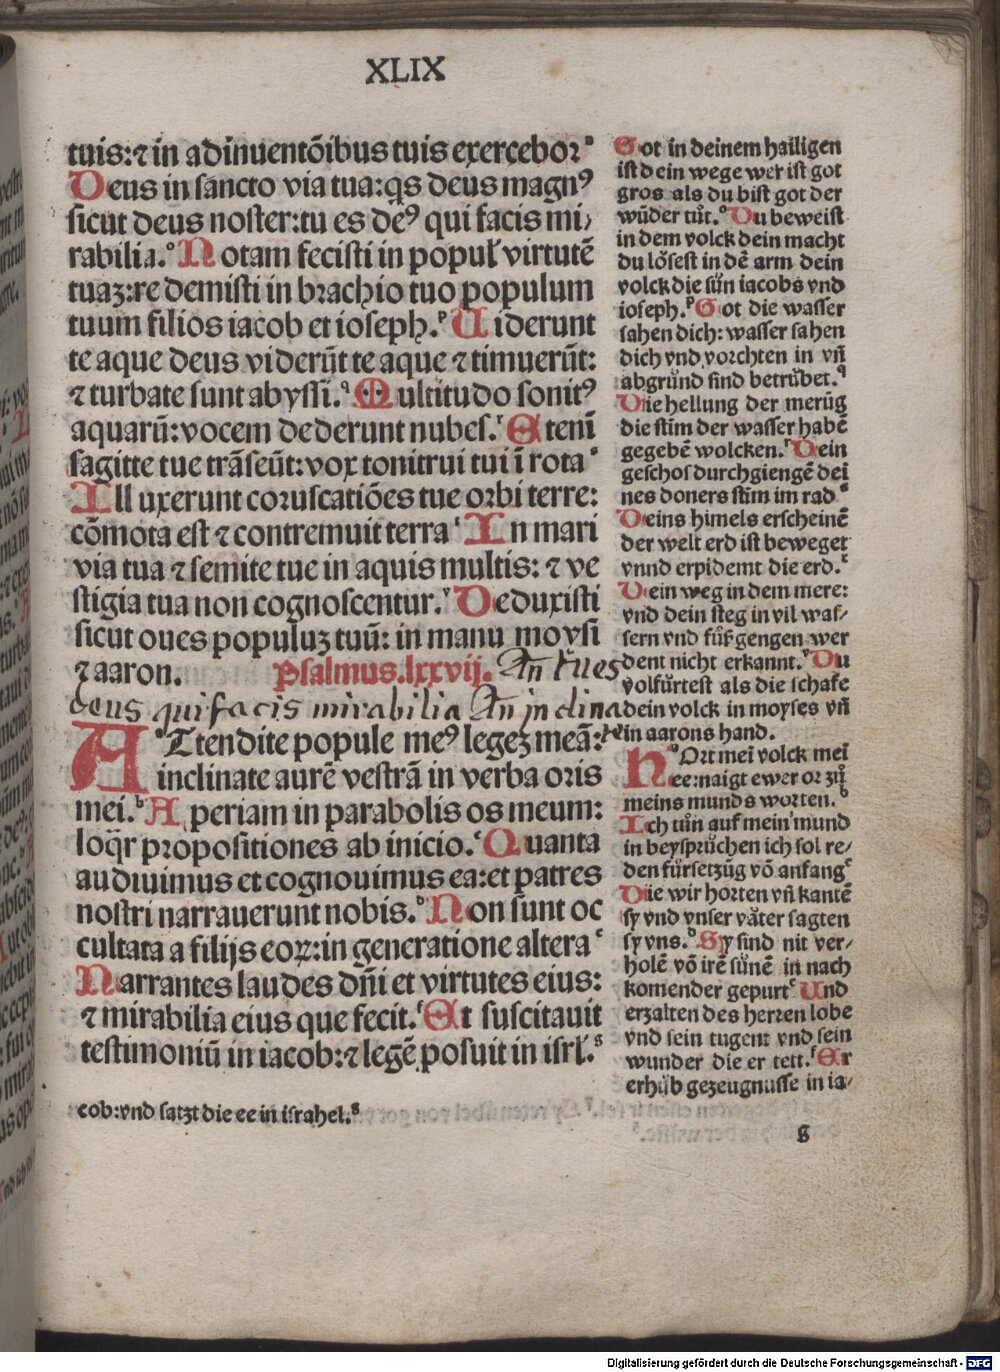 XLIX
tuis:⁊ in adinuentōibus tuis exercebor
Deus in sancto via tua:qs deus magnꝰ
sicut deus noster:tu es deꝰ qui facis mi/
rabilia. Notam fecisti in popul' virtutē
tuaʒ:redemisti in brachio tuo populum
tuum filios iacob et ioseph. Uiderunt
te aque deus viderūt te aque ⁊ timuerūt:
⁊ turbate sunt abyssi. Multitudo sonitꝰ
aquarū:vocem dederunt nubes. Etenī
sagitte tue trāseūt:vox tonitrui tui ī rota
Illuxerunt coruscatiōes tue orbi terre:
cōmota est ⁊ contremuit terra In mari
via tua ⁊ semite tue in aquis multis: ⁊ ve
stigia tua non cognoscentur. Deduxisti
sicut oues populuʒ tuū: in manu moysi
⁊ aaron. Psalmus.lxxvij. An tu es
deus qui facis mirabilia An inclina
ATtendite popule meꝰ legeʒ meā:
inclinate aurē vestrā in verba oris
mei. Aperiam in parabolis os meum:
loqr propositiones ab inicio. Quanta
audiuimus et cognouimus ea:et patres
nostri narrauerunt nobis. Non sunt oc
cultata a filijs eoꝝ:in generatione altera
Narrantes laudes dn̄i et virtutes eius:
⁊ mirabilia eius que fecit. Et suscitauit
testimoniū in iacob:⁊ legē posuit in isrl.
cob:vnd satzt die ee in israhel.
Got in deinem hailigen
ist dein wege wer ist got
gros als du bist got der
wūder tůt. Du beweist
in dem volck dein macht
du lösest in dē arm dein
volck die sün iacobs vnd
ioseph. Got die wasser
sahen dich: wasser sahen
dich vnd vorchten in vn̄
abgründ sind betrübet.
Die hellung der merūg
die stim der wasser habē
gegebē wolcken. Dein
geschos durchgiengē dei
nes doners stim im rad
Deins himels erscheinē
der welt erd ist beweget
vnnd erpidemt die erd.
Dein weg in dem mere:
vnd dein steg in vil was/
sern vnd fůßgengen wer
dent nicht erkannt. Du
volfürtest als die schafe
dein volck in moyses vn̄
in aarons hand.
HOrt mei volck mei
ee:naigt ewer or zů
meins munds worten.
Ich tůn auf mein mund
in beysprüchen ich sol re/
den fürsetzūg vō anfang
Die wir horten vn̄ kantē
sy vnd vnser väter sagten
sy vns. Sy sind nit ver/
holē vō irē sünē in nach
komender gepurt Und
erzalten des herren lobe
vnd sein tugent vnd sein
wunder die er tett. Er
erhůb gezeugnusse in ia/
g
Digitalisierung gefördert durch die Deutsche Forschungsgemeinschaft - DFG